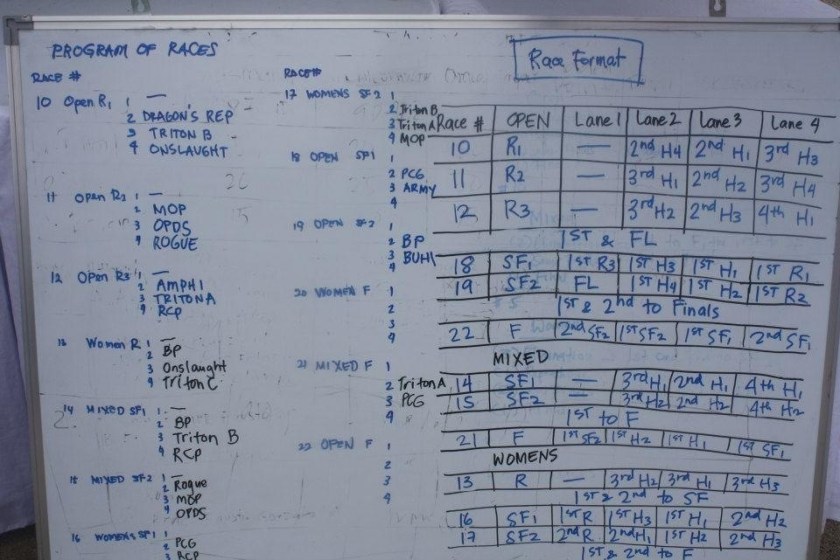 PROGRAM OF RACES
RACE #
10 Open R1 1 —
2 DRAGON'S REP
3 TRITON B
4 ONSLAUGHT
11 Open R2 1 —
2 MOP
3 OPDS
4 ROGUE
12 Open R3 1 —
2 AMPHI
3 TRITON A
4 RCP
Women R 1 —
2 BP
3 Onslaught
4 Triton C
14 MIXED SF1 1 —
2 BP
3 Triton B
4 RCP
15 MIXED SF2 1 —
2 Rogue
3 MOP
4 OPDS
16 WOMENS SF1 1
2 PCG
3 RCP
RACE#
17 WOMENS SF2 1
2 Triton B
3 Triton A
4 MOP
18 OPEN SF1 1
2 PCG
3 ARMY
4
19 OPEN SF2 1
2 BP
3 BUHI
4
20 WOMEN F 1
2
3
4
21 MIXED F 1
2 Triton A
3 PCG
4
22 OPEN F 1
2
3
4
Race Format
Race # OPEN Lane 1 Lane 2 Lane 3 Lane 4
10 R1 — 2nd H4 2nd H1 3rd H3
11 R2 — 3rd H1 2nd H2 3rd H4
12 R3 — 3rd H2 2nd H3 4th H1
1ST & FL
18 SF1 1ST R3 1ST H3 1ST H1 1ST R1
19 SF2 FL 1ST H4 1ST H2 1ST R2
1ST & 2nd to Finals
22 F 2nd SF2 1ST SF2 1ST SF1 2nd SF1
MIXED
14 SF1 — 3rd H1 2nd H1 4th H1
15 SF2 — 3rd H2 2nd H2 4th H2
1ST to F
21 F 1ST SF2 1ST H2 1ST H1 1ST SF1
WOMENS
13 R — 3rd H2 3rd H1 3rd H3
1ST & 2nd to SF
16 SF1 1ST R 1ST H3 1ST H1 2nd H2
17 SF2 2nd R 2nd H1 1ST H2 2nd H3
1ST & 2nd to F